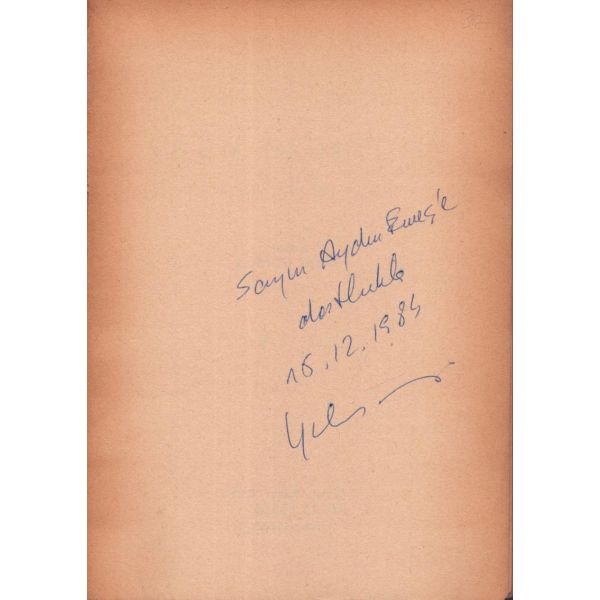 Sayın Aydın Emeç'e
dostlukla
16.12.1984